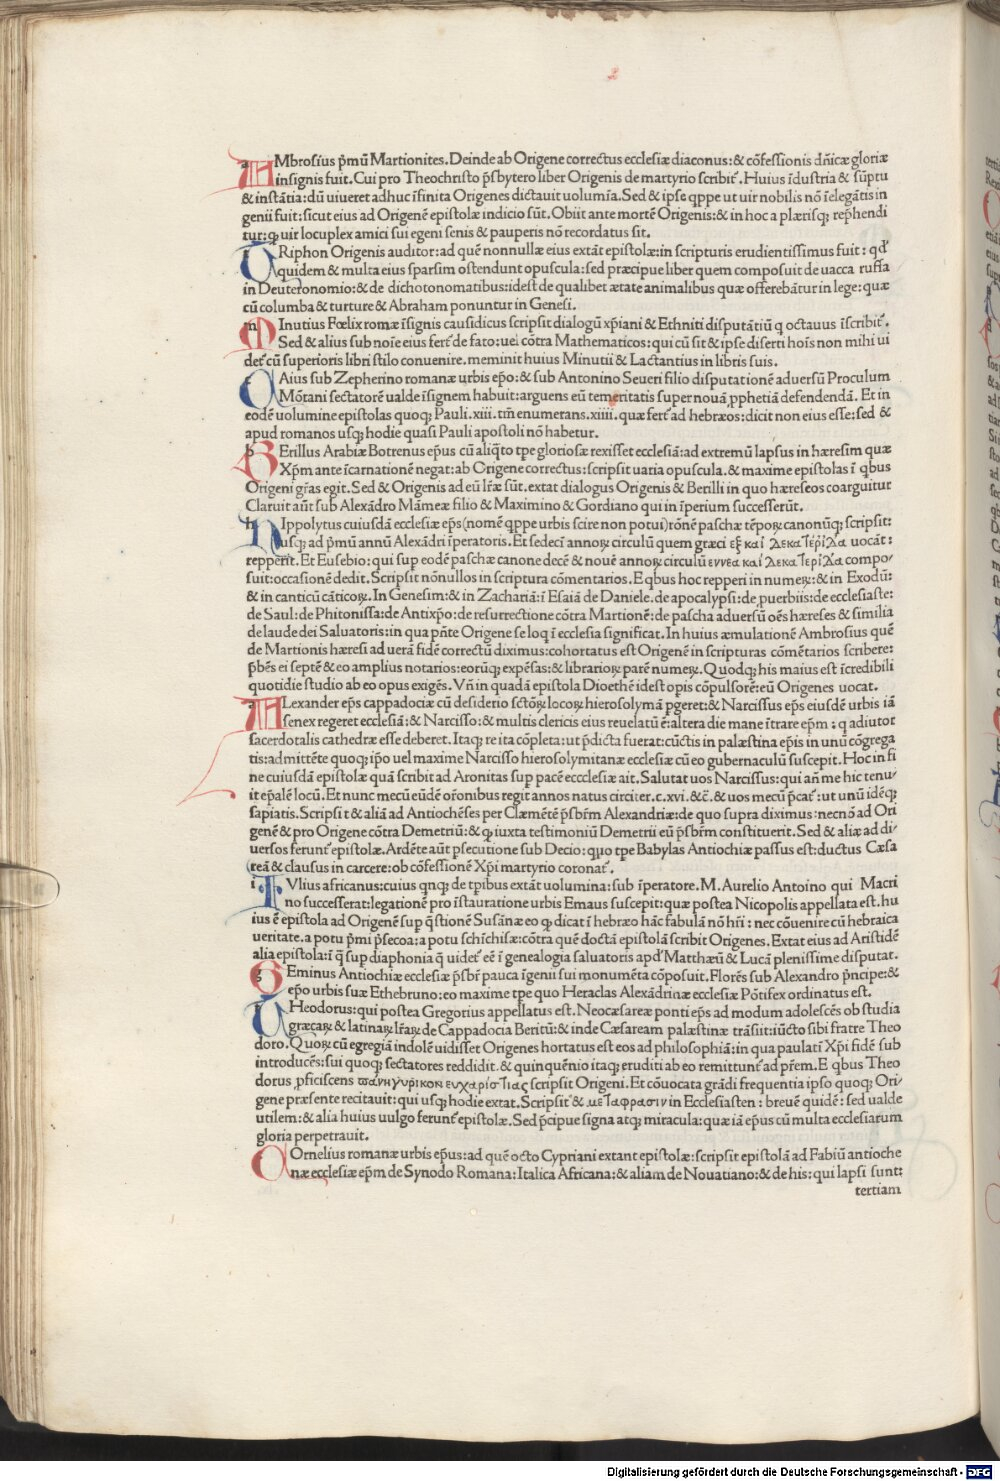 AMbrosius p̄mū Martionites. Deinde ab Origene correctus ecclesiæ diaconus: & cōfessionis dn̄icæ gloriæ
insignis fuit. Cui pro Theochristo p̄sbytero liber Origenis de martyrio scribit᷑. Huius īdustria & sūptu
& instātia: dū uiueret adhuc īfinita Origenes dictauit uolumīa. Sed & ipse qppe ut uir nobilis nō īelegātis in
genii fuit: sicut eius ad Origenē epistolæ indicio sūt. Obiit ante mortē Origenis: & in hoc a plærisqꝫ rep̄hendi
tur: ꝙ uir locuplex amici sui egeni senis & pauperis nō recordatus sit.
TRiphon Origenis auditor: ad quē nonnullæ eius extāt epistolæ: in scripturis erudientissimus fuit: qd᷑
quidem & multa eius sparsim ostendunt opuscula: sed præcipue liber quem composuit de uacca ruffa
in Deuteronomio: & de dichotonomatibus: idest de qualibet ætate animalibus quæ offerebātur in lege: quæ
cū columba & turture & Abraham ponuntur in Genesi.
MInutius Fœlix romæ īsignis causidicus scripsit dialogū xp̄iani & Ethniti disputātiū q octauus īscribit᷑.
Sed & alius sub noīe eius fert᷑ de fato: uel cōtra Mathematicos: qui cū sit & ipse diserti hoīs non mihi ui
det᷑ cū superioris libri stilo conuenire. meminit huius Minutii & Lactantius in libris suis.
CAius sub Zepherino romanæ urbis ep̄o: & sub Antonino Seueri filio disputationē aduersū Proculum
Mōtani sectatorē ualde īsignem habuit: arguens eū temeritatis super nouā ꝓphetiā defendendā. Et in
eodē uolumine epistolas quoqꝫ Pauli. xiii. tm̄ enumerans. xiiii. quæ fert᷑ ad hebræos: dicit non eius esse: sed &
apud romanos usqꝫ hodie quasi Pauli apostoli nō habetur.
BErillus Arabiæ Botrenus ep̄us cū aliq̄to tp̄e gloriosæ rexisset ecclesiā: ad extremū lapsus in hæresim quæ
Xp̄m ante īcarnationē negat: ab Origene correctus: scripsit uaria opuscula. & maxime epistolas ī qbus
Origeni gr̄as egit. Sed & Origenis ad eū lr̄æ sūt. extat dialogus Origenis & Berilli in quo hæreseos coarguitur
Claruit aūt sub Alexādro Māmeæ filio & Maximino & Gordiano qui in īperium successerūt.
HIppolytus cuiusdā ecclesiæ ep̄s (nomē qppe urbis scire non potui) rōnē paschæ tēpoꝝ canonūqꝫ scripsit:
usqꝫ ad p̄mū annū Alexādri īperatoris. Et sedecī annoꝝ circulū quem græci εξ καὶ δεκατερίδα uocāt:
repperit. Et Eusebio: qui sup eodē paschæ canone decē & nouē annoꝝ circulū εννεα και δεκατεριδα compo⸗
suit: occasionē dedit. Scripsit nōnullos in scriptura cōmentarios. E qbus hoc repperi in numeꝝ: & in Exodū:
& in canticū cāticoꝝ. In Genesim: & in Zachariā: ī Esaiā de Daniele. de apocalypsi: de ꝓuerbiis: de ecclesiaste:
de Saul: de Phitonissa: de Antixp̄o: de resurrectione cōtra Martionē: de pascha aduersū oēs hæreses & similia
de laude dei Saluatoris: in qua pn̄te Origene se loq ī ecclesia significat. In huius æmulationē Ambrosius quē
de Martionis hæresi ad uerā fidē correctū diximus: cohortatus est Origenē in scripturas cōmētarios scribere:
p̄bēs ei septē & eo amplius notarios: eorūqꝫ expēsas: & librarioꝝ parē numeꝝ. Quodqꝫ his maius est īcredibili
quotidie studio ab eo opus exigēs. Vn̄ in quadā epistola Dioethē idest opis cōpulsorē: eū Origenes uocat.
ALexander ep̄s cappadociæ cū desiderio sctōꝝ locoꝝ hierosolymā ꝑgeret: & Narcissus ep̄s eiusdē urbis iā
senex regeret ecclesiā: & Narcisso: & multis clericis eius reuelatū ē: altera die mane ītrare ep̄m: q adiutor
sacerdotalis cathedræ esse deberet. Itaqꝫ re ita cōpleta: ut p̄dicta fuerat: cūctis in palæstina ep̄is in unū cōgrega
tis: admittēte quoqꝫ ip̄o uel maxime Narcisso hierosolymitanæ ecclesiæ cū eo gubernaculū suscepit. Hoc in fi
ne cuiusdā epistolæ quā scribit ad Aronitas sup pacē eccclesiæ ait. Salutat uos Narcissus: qui añ me hic tenu⸗
it ep̄alē locū. Et nunc mecū eūdē or̄onibus regit annos natus circiter. c. xvi. &c̄. & uos mecū p̄cat᷑: ut unū idēqꝫ
sapiatis. Scripsit & aliā ad Antiochēses per Clæmētē p̄sbr̄m Alexandriæ: de quo supra diximus: necnō ad Ori
genē & pro Origene cōtra Demetriū: & ꝙ iuxta testimoniū Demetrii eū p̄sbr̄m constituerit. Sed & aliæ ad di⸗
uersos ferunt᷑ epistolæ. Ardēte aūt ꝑsecutione sub Decio: quo tp̄e Babylas Antiochiæ passus est: ductus Cæsa
reā & clausus in carcere: ob cōfessionē Xp̄i martyrio coronat᷑.
IVlius africanus: cuius qnqꝫ de tpibus extāt uolumina: sub īperatore. M. Aurelio Antoino qui Macri
no successerat: legationē pro īstauratione urbis Emaus suscepit: quæ postea Nicopolis appellata est. hu
ius ē epistola ad Origenē sup q̄stionē Susānæ eo ꝙ dicat ī hebræo hāc fabulā nō hr̄i: nec cōuenire cū hebraica
ueritate. a potu p̄mi p̄secoa: a potu schīchisæ: cōtra quē doctā epistolā scribit Origenes. Extat eius ad Aristidē
alia epistola: ī q̄ sup diaphonia q̄ uidet᷑ eē ī genealogia saluatoris apd᷑ Matthæū & Lucā plenissime disputat.
GEminus Antiochiæ ecclesiæ p̄sbr̄ pauca īgenii sui monumēta cōposuit. Flores̄ sub Alexandro p̄ncipe: &
ep̄o urbis suæ Ethebruno: eo maxime tp̄e quo Heraclas Alexādrinæ ecclesiæ Pōtifex ordinatus est.
THeodorus: qui postea Gregorius appellatus est. Neocæsareæ ponti ep̄s ad modum adolescēs ob studia
græcaꝝ & latinaꝝ lr̄aꝝ de Cappadocia Beritū: & inde Cæsaream palæstinæ trāsiit: iūcto sibi fratre Theo
doro. Quoꝝ cū egregiā indolē uidisset Origenes hortatus est eos ad philosophiā: in qua paulatī Xp̄i fidē sub
introducēs: sui quoqꝫ sectatores reddidit. & quinquēnio itaqꝫ eruditi ab eo remittunt᷑ ad pr̄em. E qbus Theo
dorus ꝓficiscens πανηγυρικον ευχαριστιας scripsit Origeni. Et cōuocata grādi frequentia ipso quoqꝫ Ori⸗
gene præsente recitauit: qui usqꝫ hodie extat. Scripsit & μεταφρασιν in Ecclesiasten: breuē quidē: sed ualde
utilem: & alia huius uulgo ferunt᷑ epistolæ. Sed p̄cipue signa atqꝫ miracula: quæ iā ep̄us cū multa ecclesiarum
gloria perpetrauit.
COrnelius romanæ urbis ep̄us: ad quē octo Cypriani extant epistolæ: scripsit epistolā ad Fabiū antioche
næ ecclesiæ ep̄m de Synodo Romana: Italica Africana: & aliam de Nouatiano: & de his: qui lapsi sunt:
tertiam
Digitalisierung gefördert durch die Deutsche Forschungsgemeinschaft - DFG